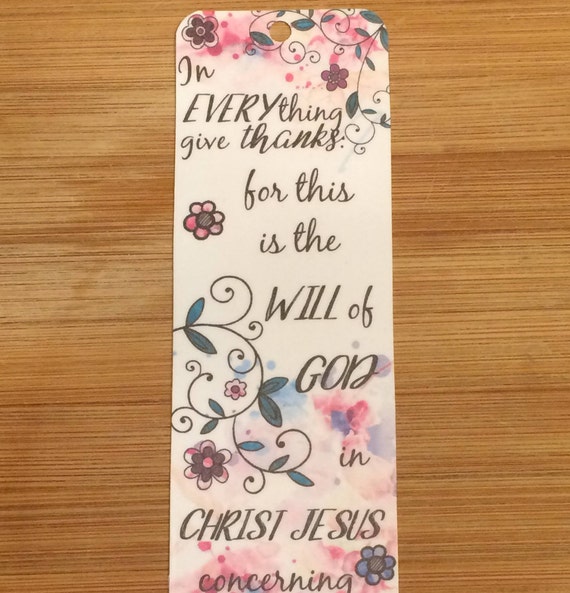 In
EVERYthing
give thanks:
for this
is the
WILL of
GOD
in
CHRIST JESUS
concerning